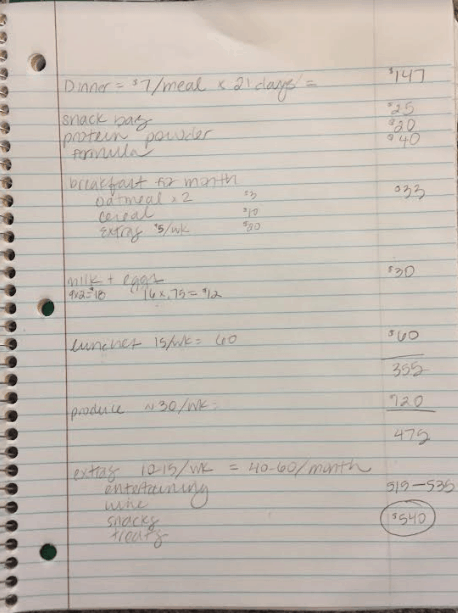 Dinner = $7/meal x 21 days = $147
snack bag $25
protein powder $20
formula $40
breakfast for month $33
oatmeal x 2 $3
cereal $10
extras $5/wk $20
milk + eggs $30
9x2=$18 16 x .75 = $12
lunches 15/wk = 60 $60
355
produce ~30/wk = 120
475
extras 10-15/wk = 40-60/month
entertaining 515-535
wine
snacks $540
treats